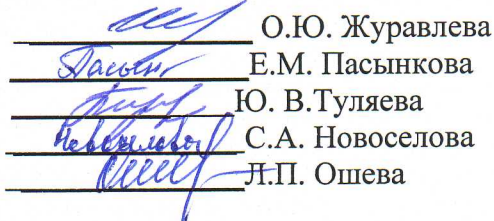 О.Ю. Журавлева
Е.М. Пасынкова
Ю. В.Туляева
С.А. Новоселова
Л.П. Ошева